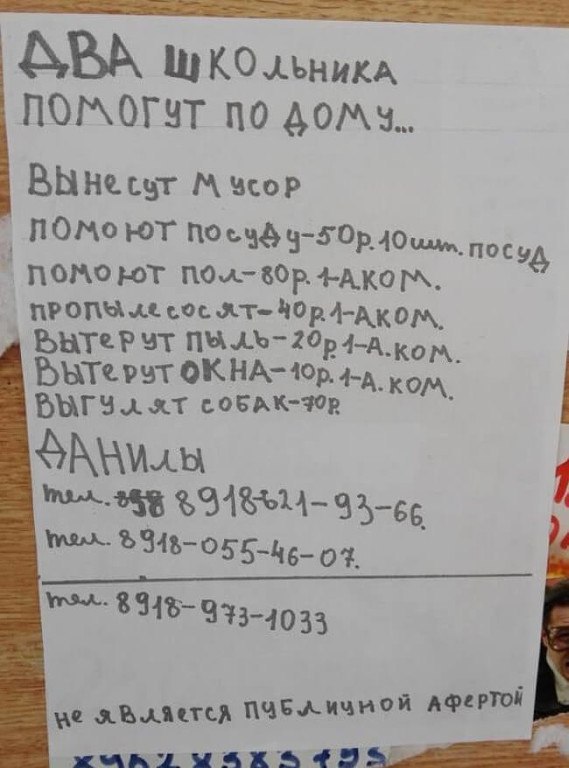 ДВА ШКОЛЬНИКА
ПОМОГУТ ПО ДОМУ...
ВЫНЕСУТ МУСОР
ПОМОЮТ ПОСУДУ-50р. 10шт. ПОСУД
ПОМОЮТ ПОЛ-80р. 1-А.КОМ.
ПРОПЫЛЕСОСЯТ-40р. 1-А.КОМ.
ВЫТЕРУТ ПЫЛЬ-20р. 1-А.КОМ.
ВЫТЕРУТ ОКНА-10р. 1-А.КОМ.
ВЫГУЛЯТ СОБАК-70р
ДАНИЛЫ
тел. 8918-621-93-66.
тел. 8918-055-46-07.
тел. 8918-973-1033
НЕ ЯВЛЯЕТСЯ ПУБЛИЧНОЙ АФЕРТОЙ